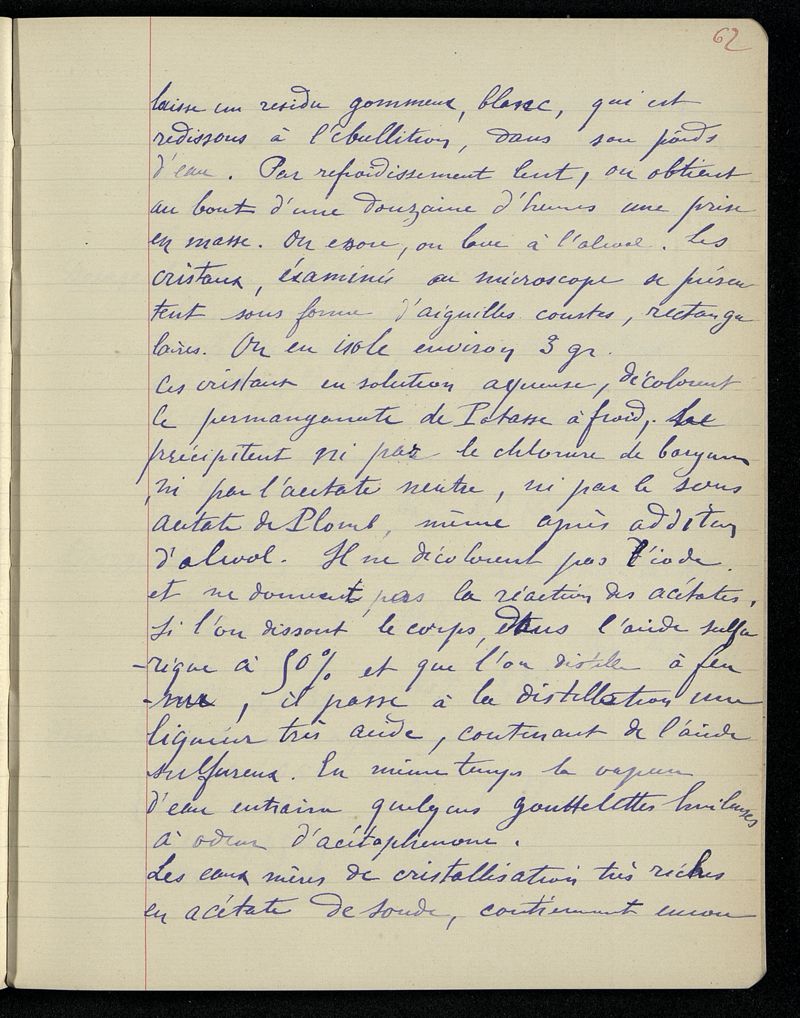 62
laisse un residu gommeux, blanc, qui est
redissous à l'ébullition, dans son poids
d'eau. Par refroidissement lent, on obtient
au bout d'une douzaine d'heures une prise
en masse. On essore, on lave à l'alcool. Les
cristaux, éxaminés au microscope se présen
tent sous forme d'aiguilles courtes, rectangu
laires. On en isole environ 3 gr.
Ces cristaux en solution aqueuse, décolorent
le permanganate de Potasse à froid,. Ne
précipitent ni par le chlorure de baryum
, ni par l'acetate neutre, ni par le sous
acetate de Plomb, même après addition
d'alcool. Il ne décolorent pas l'iode.
et ne donnent pas la réaction des acétates.
Si l'on dissout le corps, dans l'acide sulfu
-rique à 50% et que l'on distille à feu
-nu, il passe à la distillation une
liqueur très acide, contenant de l'acide
sulfureux. En même temps la vapeur
d'eau entraine quelques gouttelettes huileuses
à odeur d'acétophenone.
Les eaux mères de cristallisation très riches
en acétate de soude, contiennent encore